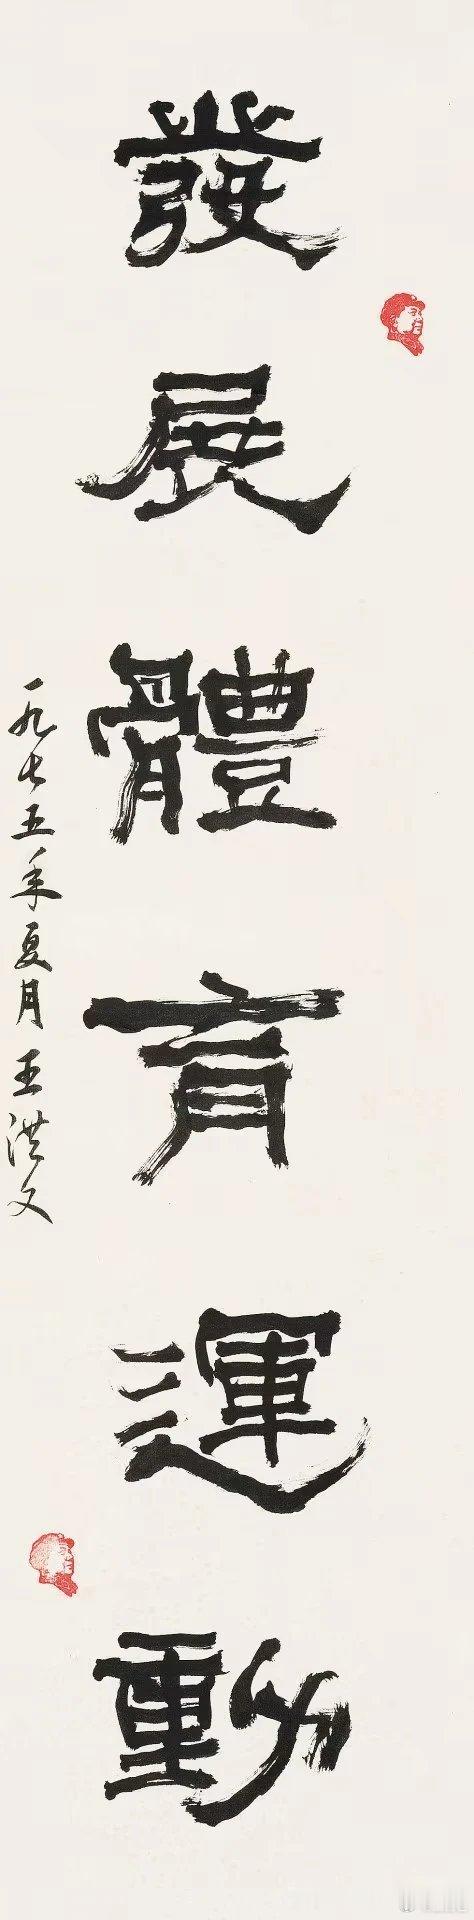 發展體育運動
一九七五年夏月 王洪文